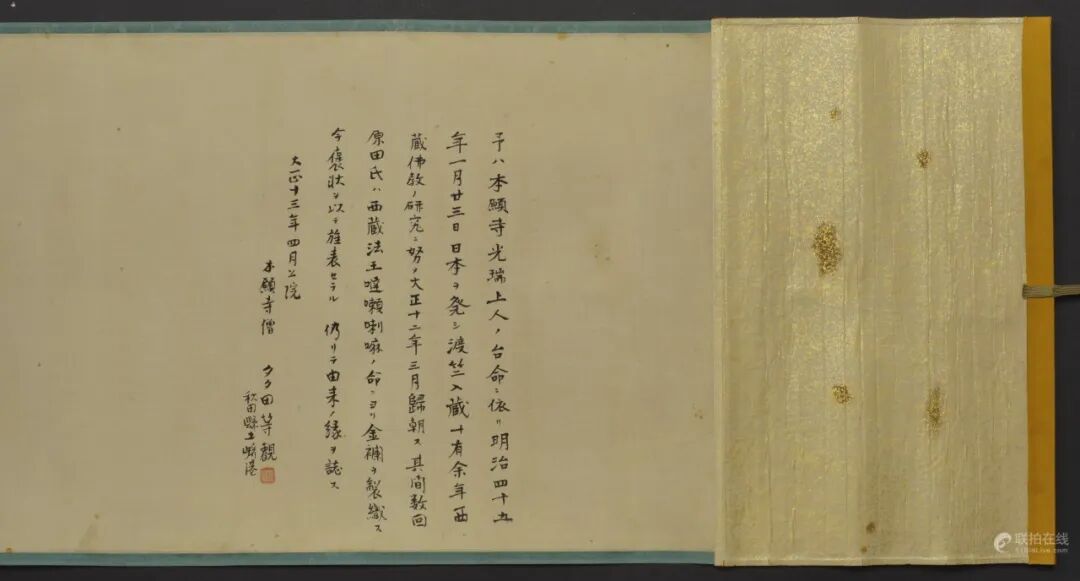 予ハ本願寺光瑞上人ノ台命ニ依リ明治四十五
年一月廿三日日本ヲ発シ渡竺入蔵十有余年西
蔵佛教ノ研究ニ努メ大正十二年三月歸朝ス其間数回
原田氏ハ西蔵法王噠嚹喇嘛ノ命ニヨリ金補ヲ製織ス
今褒状ヲ以テ旌表セラル 仍リテ由来ノ縁ヲ誌ス
大正十三年四月 院
本願寺僧 多田等観
秋田縣土崎港
联拍在线